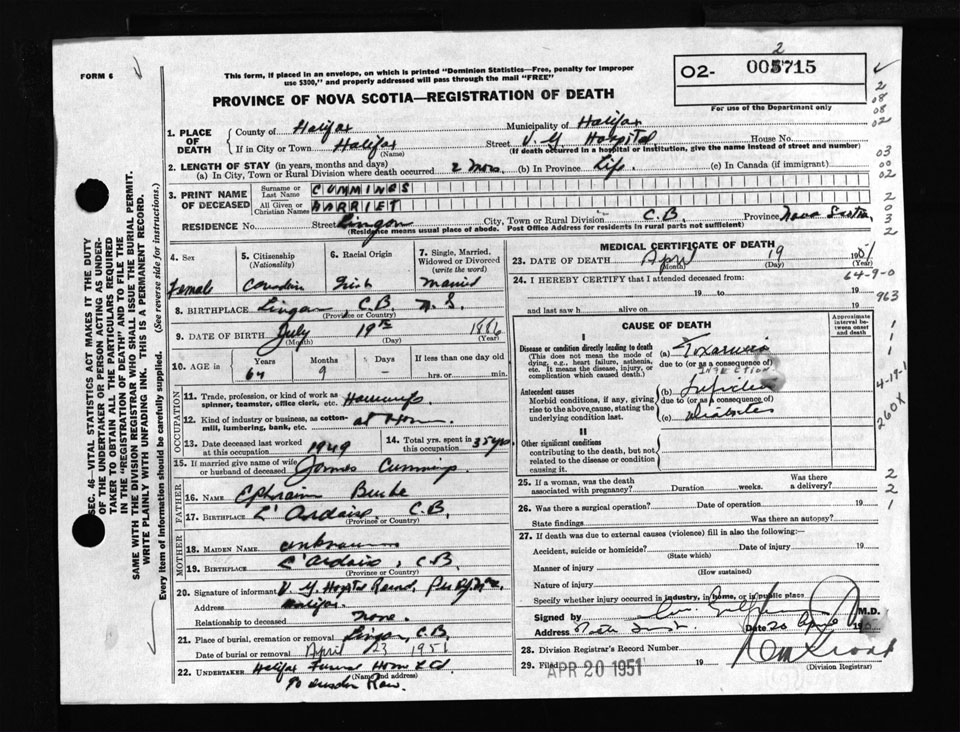 FORM 6
This form, if placed in an envelope, on which is printed "Dominion Statistics—Free, penalty for improper
use $300," and properly addressed will pass through the mail "FREE"
PROVINCE OF NOVA SCOTIA—REGISTRATION OF DEATH
2
O2- 005715
For use of the Department only
1. PLACE OF DEATH
County of Halifax Municipality of Halifax
If in City or Town Halifax (Name) Street V. G. Hospital House No.
(If death occurred in a hospital or institution, give the name instead of street and number)
2. LENGTH OF STAY (in years, months and days)
(a) In City, Town or Rural Division where death occurred 2 mos. (b) In Province Life (c) In Canada (if immigrant)
3. PRINT NAME OF DECEASED
Surname or Last Name CUMMINGS
All Given or Christian Names HARRIET
RESIDENCE No. Street Lingan City, Town or Rural Division C.B. Province Nova Scotia
(Residence means usual place of abode. Post Office Address for residents in rural parts not sufficient)
4. Sex
Female
5. Citizenship (Nationality)
Canadian
6. Racial Origin
Irish
7. Single, Married, Widowed or Divorced (write the word)
Married
8. BIRTHPLACE Lingan C.B. N.S.
(Province or Country)
9. DATE OF BIRTH July 19th 1886
(Month) (Day) (Year)
10. AGE in Years 64 Months 9 Days - If less than one day old
hrs. or min.
OCCUPATION
11. Trade, profession, or kind of work as spinner, teamster, office clerk, etc. Housewife
12. Kind of industry or business, as cotton-mill, lumbering, bank, etc. at Home
13. Date deceased last worked at this occupation 1949
14. Total yrs. spent in this occupation 35 yrs.
15. If married give name of wife or husband of deceased James Cummings
FATHER
16. NAME Ephraim Burke
17. BIRTHPLACE L'Ardoise, C.B.
(Province or Country)
MOTHER
18. MAIDEN NAME unknown
19. BIRTHPLACE L'Ardoise, C.B.
(Province or Country)
20. Signature of informant V. G. Hospital Record,
Address Halifax.
Relationship to deceased none.
21. Place of burial, cremation or removal Lingan, C.B.
Date of burial or removal April 23 1951
22. UNDERTAKER Halifax Funeral Home Ltd
(Name and address)
MEDICAL CERTIFICATE OF DEATH
23. DATE OF DEATH April 19 1951
(Month) (Day) (Year)
24. I HEREBY CERTIFY that I attended deceased from
19 to 19
and last saw h alive on 19
CAUSE OF DEATH
Approximate interval between onset and death
I
Disease or condition directly leading to death
(This does not mean the mode of dying, e.g., heart failure, asthenia, etc. It means the disease, injury, or complication which caused death.)
(a) Toxaemia
due to (or as a consequence of)
INFECTION
Antecedent causes
Morbid conditions, if any, giving rise to the above cause, stating the underlying condition last.
(b) Infection
due to (or as a consequence of)
(c) Diabetes
II
Other significant conditions
contributing to the death, but not related to the disease or condition causing it.
25. If a woman, was the death associated with pregnancy? Duration weeks. Was there a delivery?
26. Was there a surgical operation? Date of operation 19
State findings Was there an autopsy?
27. If death was due to external causes (violence) fill in also the following:
Accident, suicide or homicide? Date of injury 19
(State which)
Manner of injury
(How sustained)
Nature of injury
Specify whether injury occurred in industry, in home, or in public place
Signed by M.D.
Address Date 20 April 19
28. Division Registrar's Record Number
29. Filed APR 20 1951 19
(Division Registrar)
SEC. 46—VITAL STATISTICS ACT MAKES IT THE DUTY
OF THE UNDERTAKER OR PERSON ACTING AS UNDER-
TAKER TO OBTAIN ALL THE PARTICULARS REQUIRED
IN THE "REGISTRATION OF DEATH" AND TO FILE THE
SAME WITH THE DIVISION REGISTRAR WHO SHALL ISSUE THE BURIAL PERMIT.
WRITE PLAINLY WITH UNFADING INK. THIS IS A PERMANENT RECORD.
Every item of information should be carefully supplied. (See reverse side for instructions.)
2
08
08
02
03
00
02
2
0
3
2
64-9-0
963
1
1
1
4-19-1
260X
2
2
1